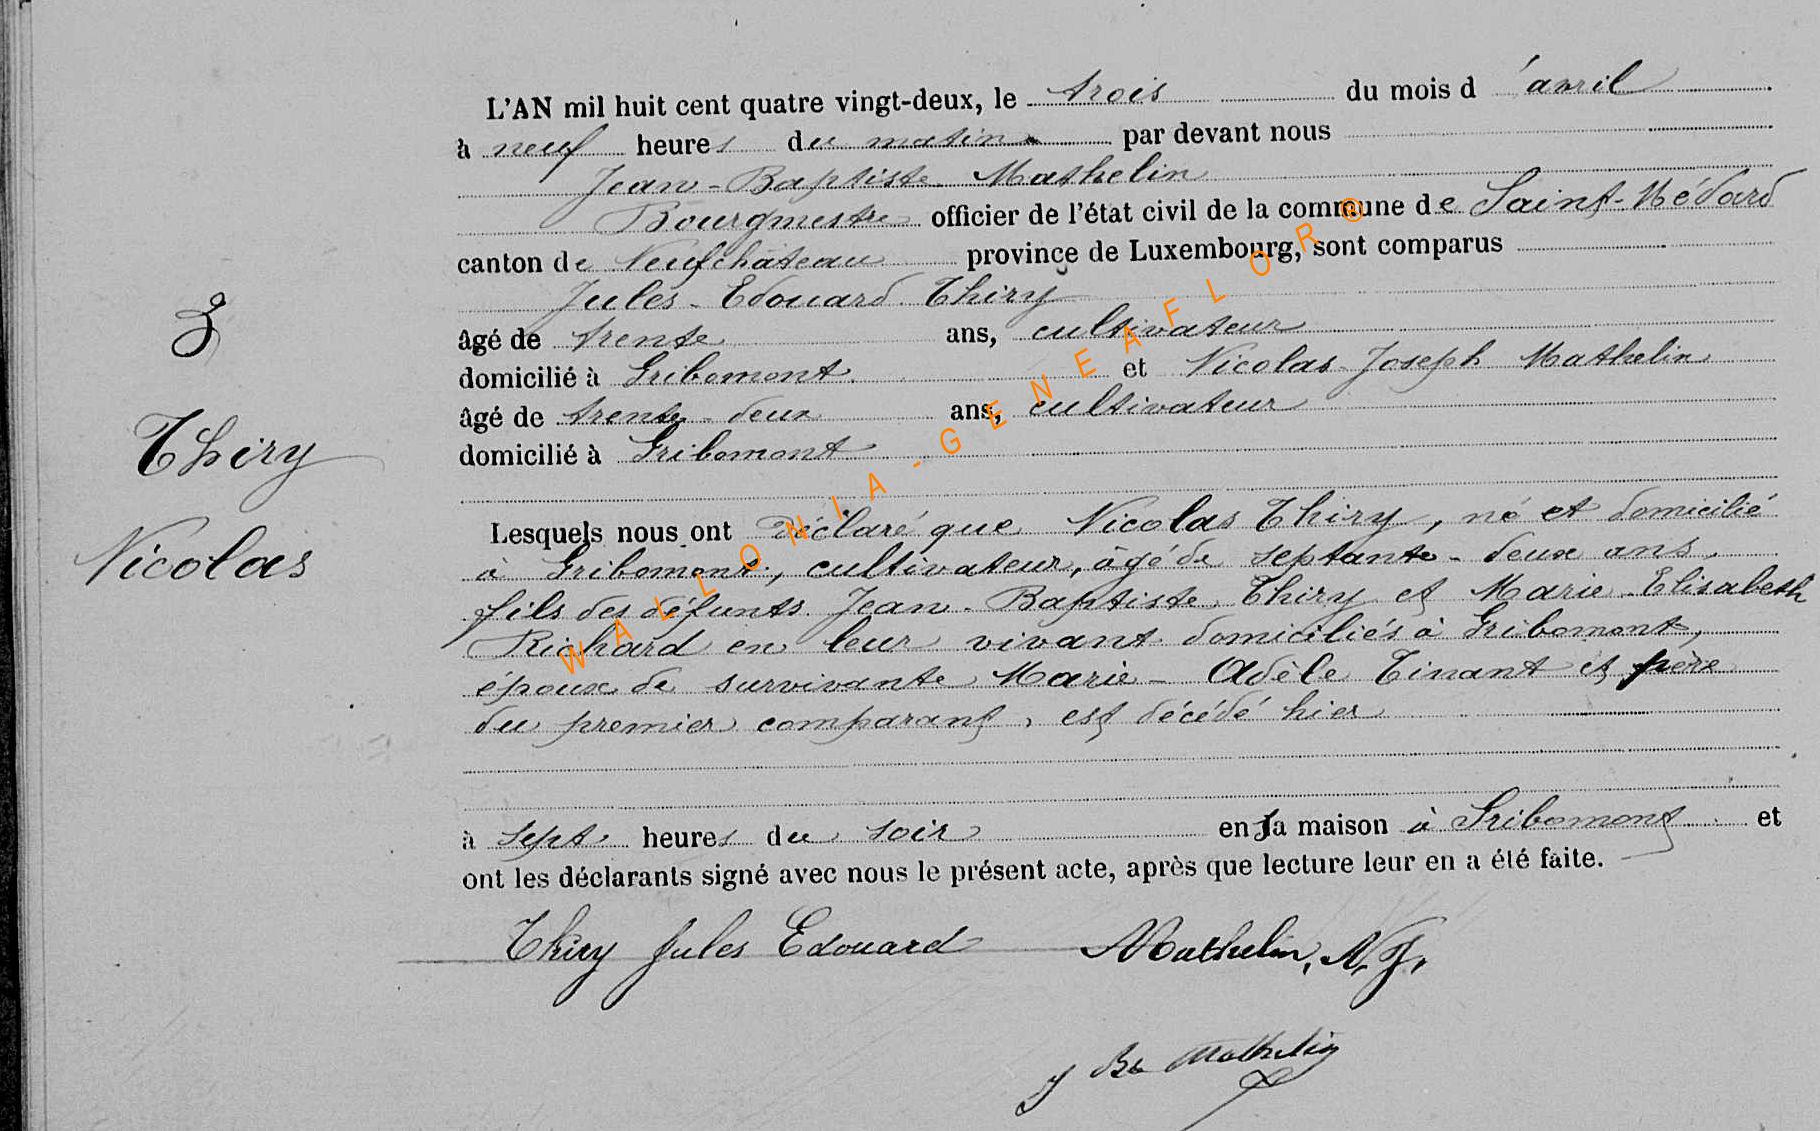 L'AN mil huit cent quatre vingt-deux, le trois du mois d'avril
à neuf heures du matin par devant nous
Jean-Baptiste Mathelin
Bourgmestre officier de l'état civil de la commune de Saint-Médard
canton de Neufchâteau province de Luxembourg, sont comparus
Jules-Edouard Thiry
âgé de trente ans, cultivateur
domicilié à Gribomont et Nicolas-Joseph Mathelin
âgé de trente-deux ans, cultivateur
domicilié à Gribomont
3
Thiry
Nicolas
Lesquels nous ont déclaré que Nicolas Thiry, né et domicilié
à Gribomont, cultivateur, âgé de septante-deux ans,
fils des défunts Jean-Baptiste Thiry et Marie-Elisabeth
Richard en leur vivant domiciliés à Gribomont,
époux de survivante Marie-Adèle Tinant et père
du premier comparant, est décédé hier
à sept heures du soir en sa maison à Gribomont et
ont les déclarants signé avec nous le présent acte, après que lecture leur en a été faite.
Thiry Jules Edouard Mathelin, N. J.
J Bte Mathelin
WALLONIA-GENEAFLOR®